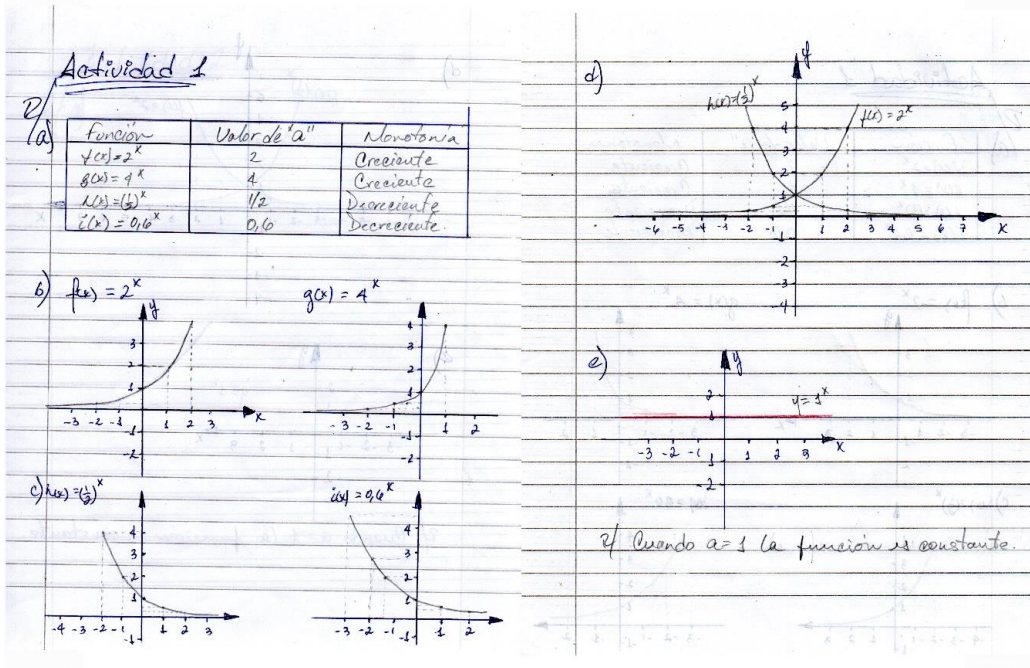 Actividad 1
R/
a)
Función Valor de "a" Monotonía
f(x)=2^x 2 Creciente
g(x)=4^x 4 Creciente
h(x)=(1/2)^x 1/2 Decreciente
i(x)=0,6^x 0,6 Decreciente.
b) f(x) = 2^x
y
3
2
1
-3 -2 -1 1 2 3 x
-1
-2
g(x) = 4^x
4
3
2
1
-3 -2 -1 1 2
-1
-2
c) h(x)=(1/2)^x
4
3
2
1
-4 -3 -2 -1 1 2 3
-1
i(x) = 0,6^x
4
3
2
1
-3 -2 -1 1 2
-1
d)
y
h(x)=(1/2)^x
f(x)=2^x
5
4
3
2
1
-6 -5 -4 -3 -2 -1 1 2 3 4 5 6 7 x
-1
-2
-3
-4
e)
y
2
y=1^x
1
-3 -2 -1 1 2 3 x
-1
-2
R/ Cuando a=1 la función es constante.